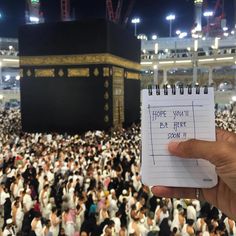 HOPE YOU'LL
BE HERE
SOON!!